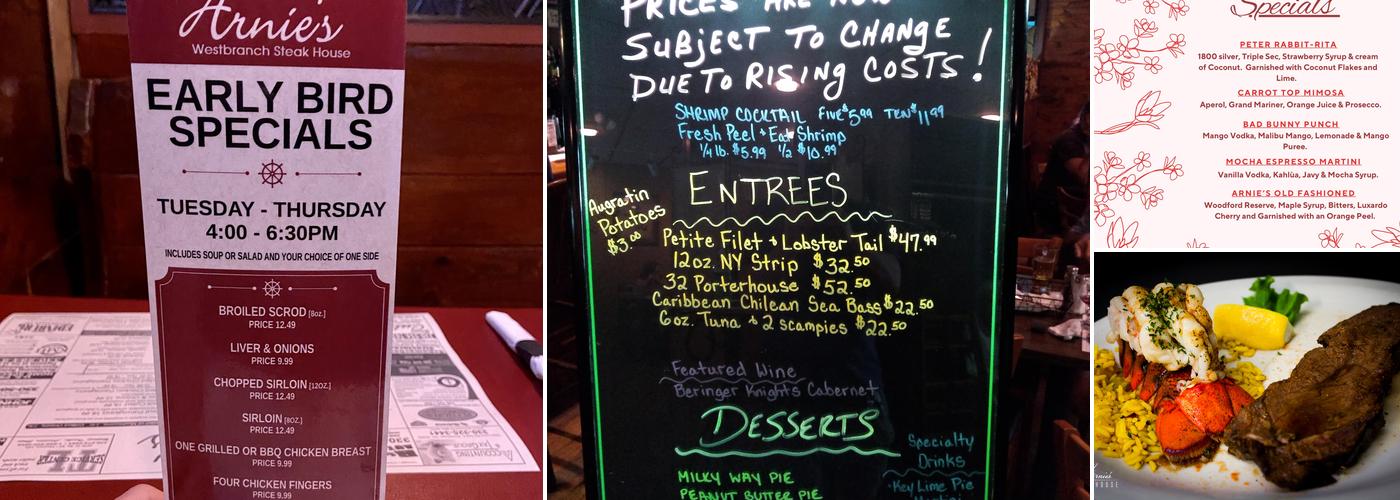 Arnie's
Westbranch Steak House
EARLY BIRD
SPECIALS
TUESDAY - THURSDAY
4:00 - 6:30PM
INCLUDES SOUP OR SALAD AND YOUR CHOICE OF ONE SIDE
BROILED SCROD [8oz.]
PRICE 12.49
LIVER & ONIONS
PRICE 9.99
CHOPPED SIRLOIN [12OZ.]
PRICE 12.49
SIRLOIN [8OZ.]
PRICE 12.49
ONE GRILLED OR BBQ CHICKEN BREAST
PRICE 9.99
FOUR CHICKEN FINGERS
PRICE 9.99
PRICES ARE NOW
SUBJECT TO CHANGE
DUE TO RISING COSTS!
SHRIMP COCKTAIL FIVE $5.99 TEN $11.99
Fresh Peel + Eat Shrimp
1/4 lb. $5.99 1/2 $10.99
Augratin
Potatoes
$3.00
ENTREES
Petite Filet + Lobster Tail $47.99
12oz. NY Strip $32.50
32 Porterhouse $52.50
Caribbean Chilean Sea Bass $22.50
6oz. Tuna + 2 scampies $22.50
Featured Wine
Beringer Knights Cabernet
DESSERTS
MILKY WAY PIE
PEANUT BUTTER PIE
Specialty
Drinks
·Key Lime Pie
Martini
Specials
PETER RABBIT-RITA
1800 silver, Triple Sec, Strawberry Syrup & cream
of Coconut. Garnished with Coconut Flakes and
Lime.
CARROT TOP MIMOSA
Aperol, Grand Mariner, Orange Juice & Prosecco.
BAD BUNNY PUNCH
Mango Vodka, Malibu Mango, Lemonade & Mango
Puree.
MOCHA ESPRESSO MARTINI
Vanilla Vodka, Kahlùa, Javy & Mocha Syrup.
ARNIE'S OLD FASHIONED
Woodford Reserve, Maple Syrup, Bitters, Luxardo
Cherry and Garnished with an Orange Peel.